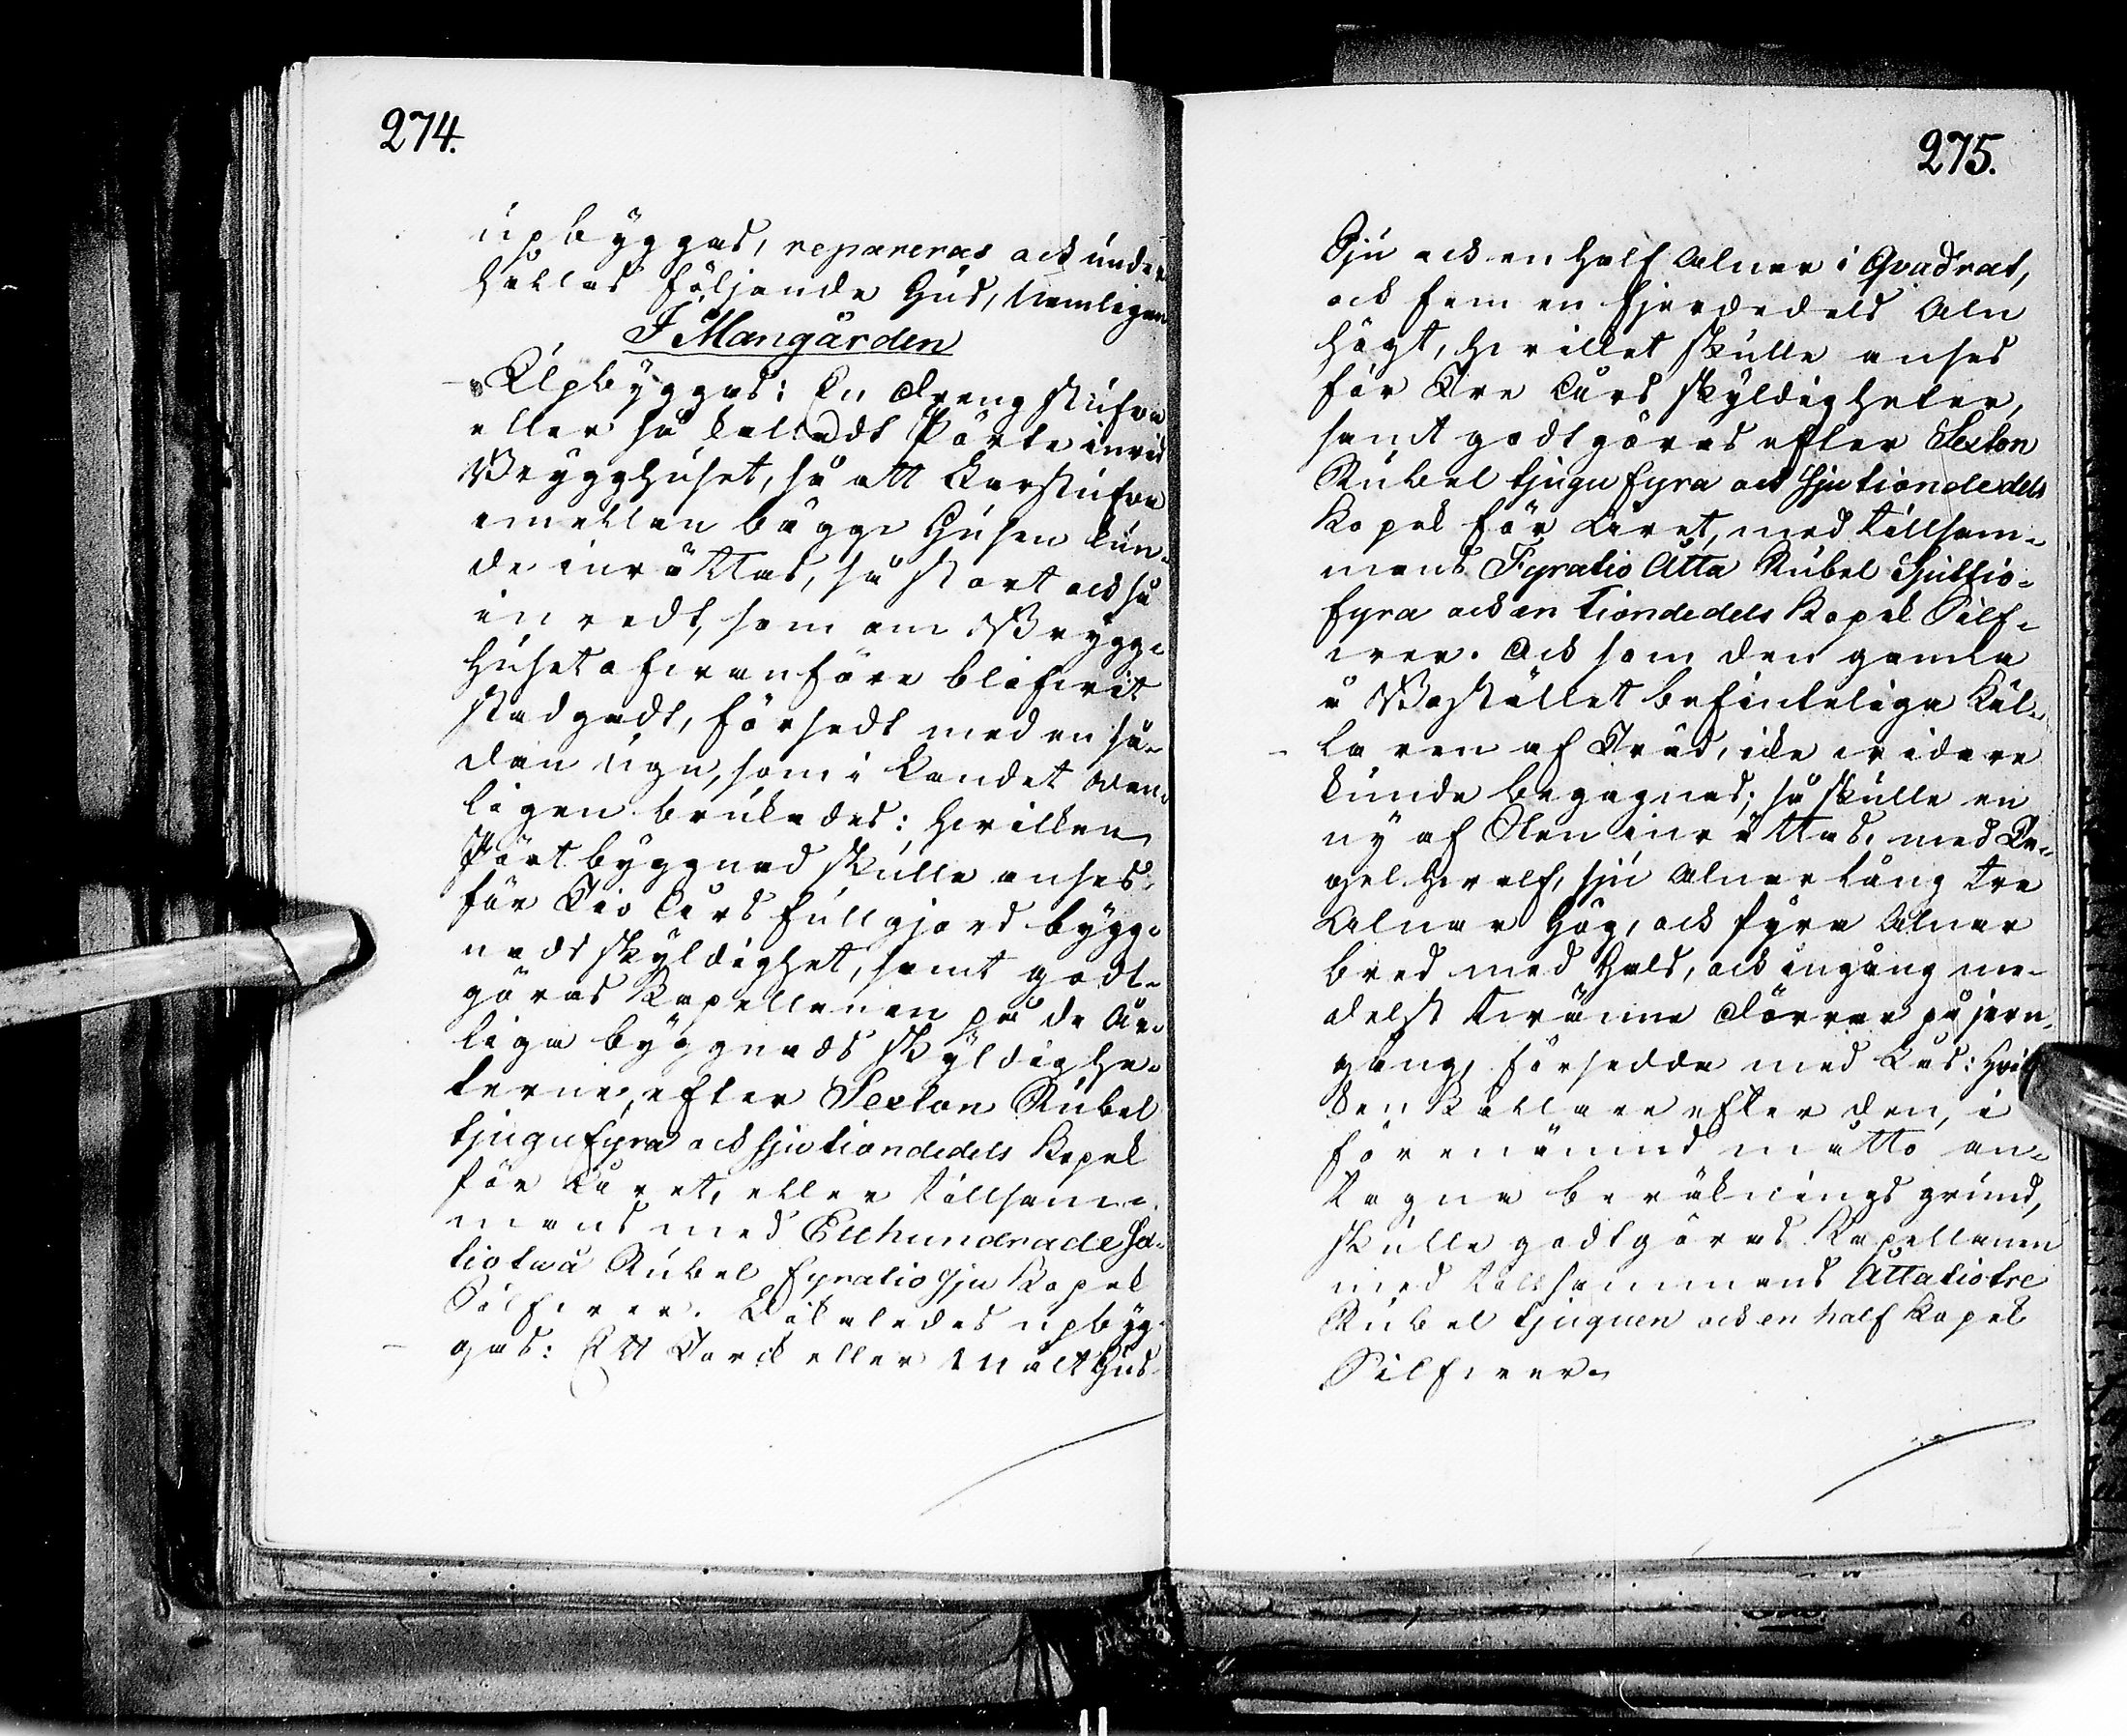 274.
upbyggas, repareras och under
hållas följande Hus, Nemligen
I Mangården
Upbyggas: En Dreng stufva
eller så kalladt Pörte invid
Brygghuset, så att Farstufva
emellan bägge Husen kun-
de inrättas, så stort och så
inredt, som om Brygg-
huset ofvanföre blifvit
stadgadt, försedt med en så-
dan ugn, som i Landet van-
ligen brukades: hvilken
Pört byggnad skulle anses
för Tio Års fullgjord bygg-
nads skyldighet, samt godt-
göras Kapellanen på de År-
liga byggnads skyldighe-
terne, efter Sexton Rubel
tjugufyra och sju tiondedels Kopek
för Året, eller tillsam-
mans med Etthundrade Sex-
tiotwå Rubel fyratiosju Kopek
Silfver. Likaledes upbyg-
gas: Ett Torck eller Malt Hus
275.
Sju och en half Alnar i Qvadrat,
och fem en fjerdedels Aln
högt, hvilket skulle anses
för Tre Års skyldigheter,
samt godtgöras efter Sexton
Rubel tjugu fyra och sju tiondedels
Kopek för Året, med tillsam-
mans Fyratio Åtta Rubel Sjuttio-
fyra och en tiondedels Kopek Silf-
ver. Och som den gamla
å Bostället befinteliga Käl-
laren af Träd, icke vidare
kunde begagnas; så skulle en
ny af Sten inrättas, med Te-
gel Hvalf, sju Alnar lång tre
Alnar hög, och fyra Alnar
bred med Hals, och ingång me-
delst tvänne Dörrar på jern-
gång, försedde med Lås: hvil
ken Källare efter den, i
förenämnd måtto an-
tagna beräknings grund,
skulle godtgöras Kapellanen
med tillsammans Åttatiotre
Rubel tjuguen och en half Kopek
Silfver.